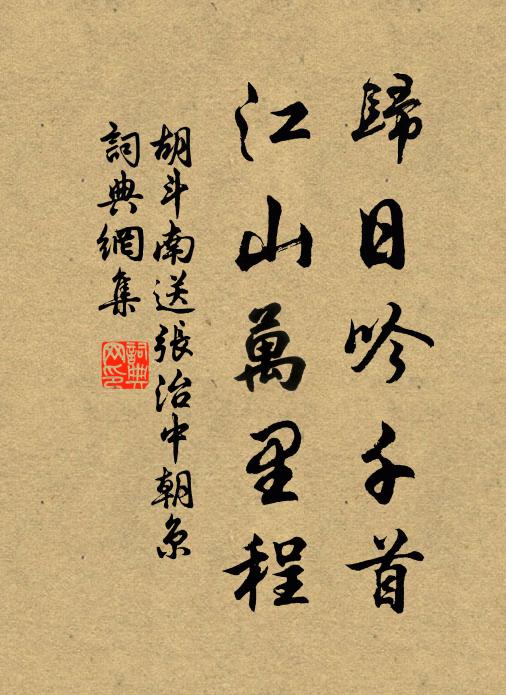 歸日吟千首
江山萬里程
胡斗南送張治中朝京
詞典網集
詞典網印